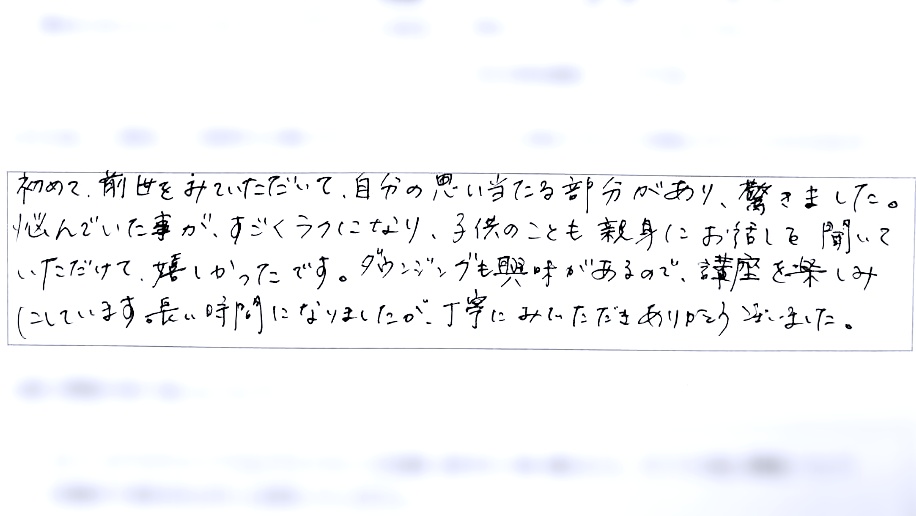 初めて、前世をみていただいて、自分の思い当たる部分があり、驚きました。
悩んでいた事が、すごくラクになり、子供のことも親身にお話しを聞いて
いただけて、嬉しかったです。ダウンジングも興味があるので、講座を楽しみ
にしています。長い時間になりましたが、丁寧にみていただきありがとうございました。